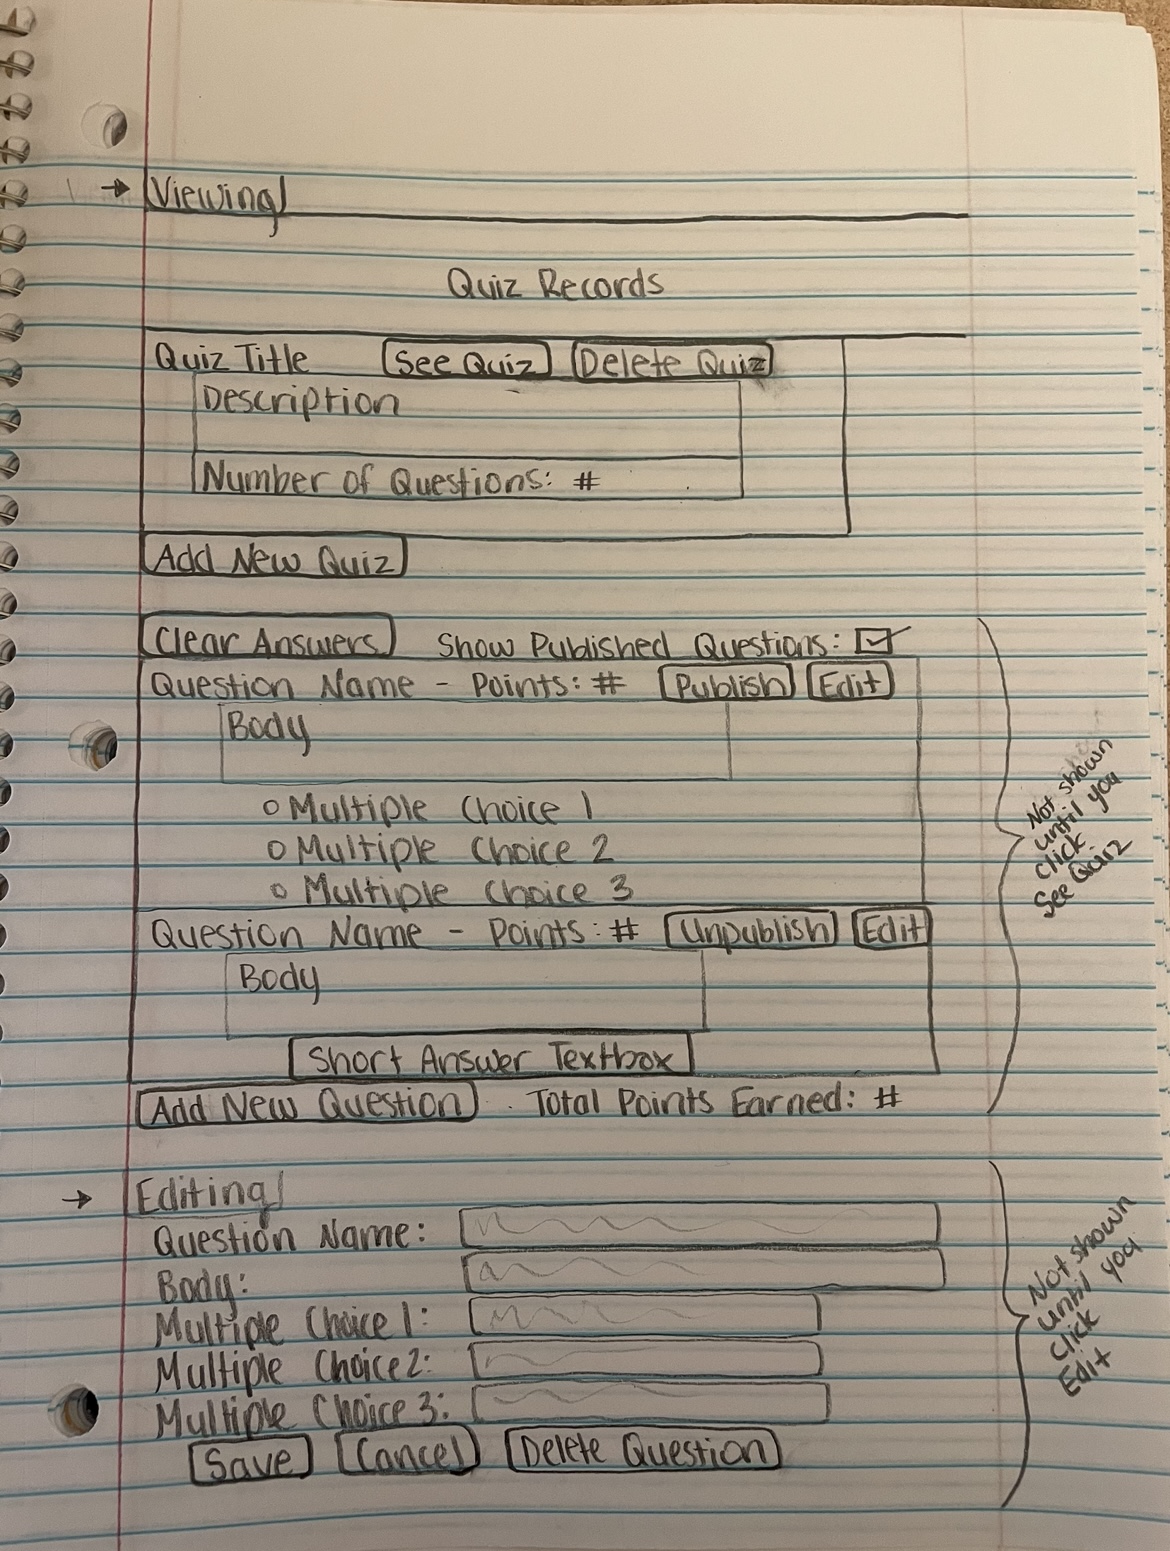 → Viewing
Quiz Records
Quiz Title See Quiz Delete Quiz
Description
Number of Questions: #
Add New Quiz
Clear Answers Show Published Questions: ☑
Question Name - Points: # Publish Edit
Body
○ Multiple Choice 1
○ Multiple Choice 2
○ Multiple Choice 3
Question Name - Points: # Unpublish Edit
Body
Short Answer Textbox
Add New Question Total Points Earned: #
Not shown
until you
click
See Quiz
→ Editing
Question Name:
Body:
Multiple Choice 1:
Multiple Choice 2:
Multiple Choice 3:
Save Cancel Delete Question
Not shown
until you
click
Edit